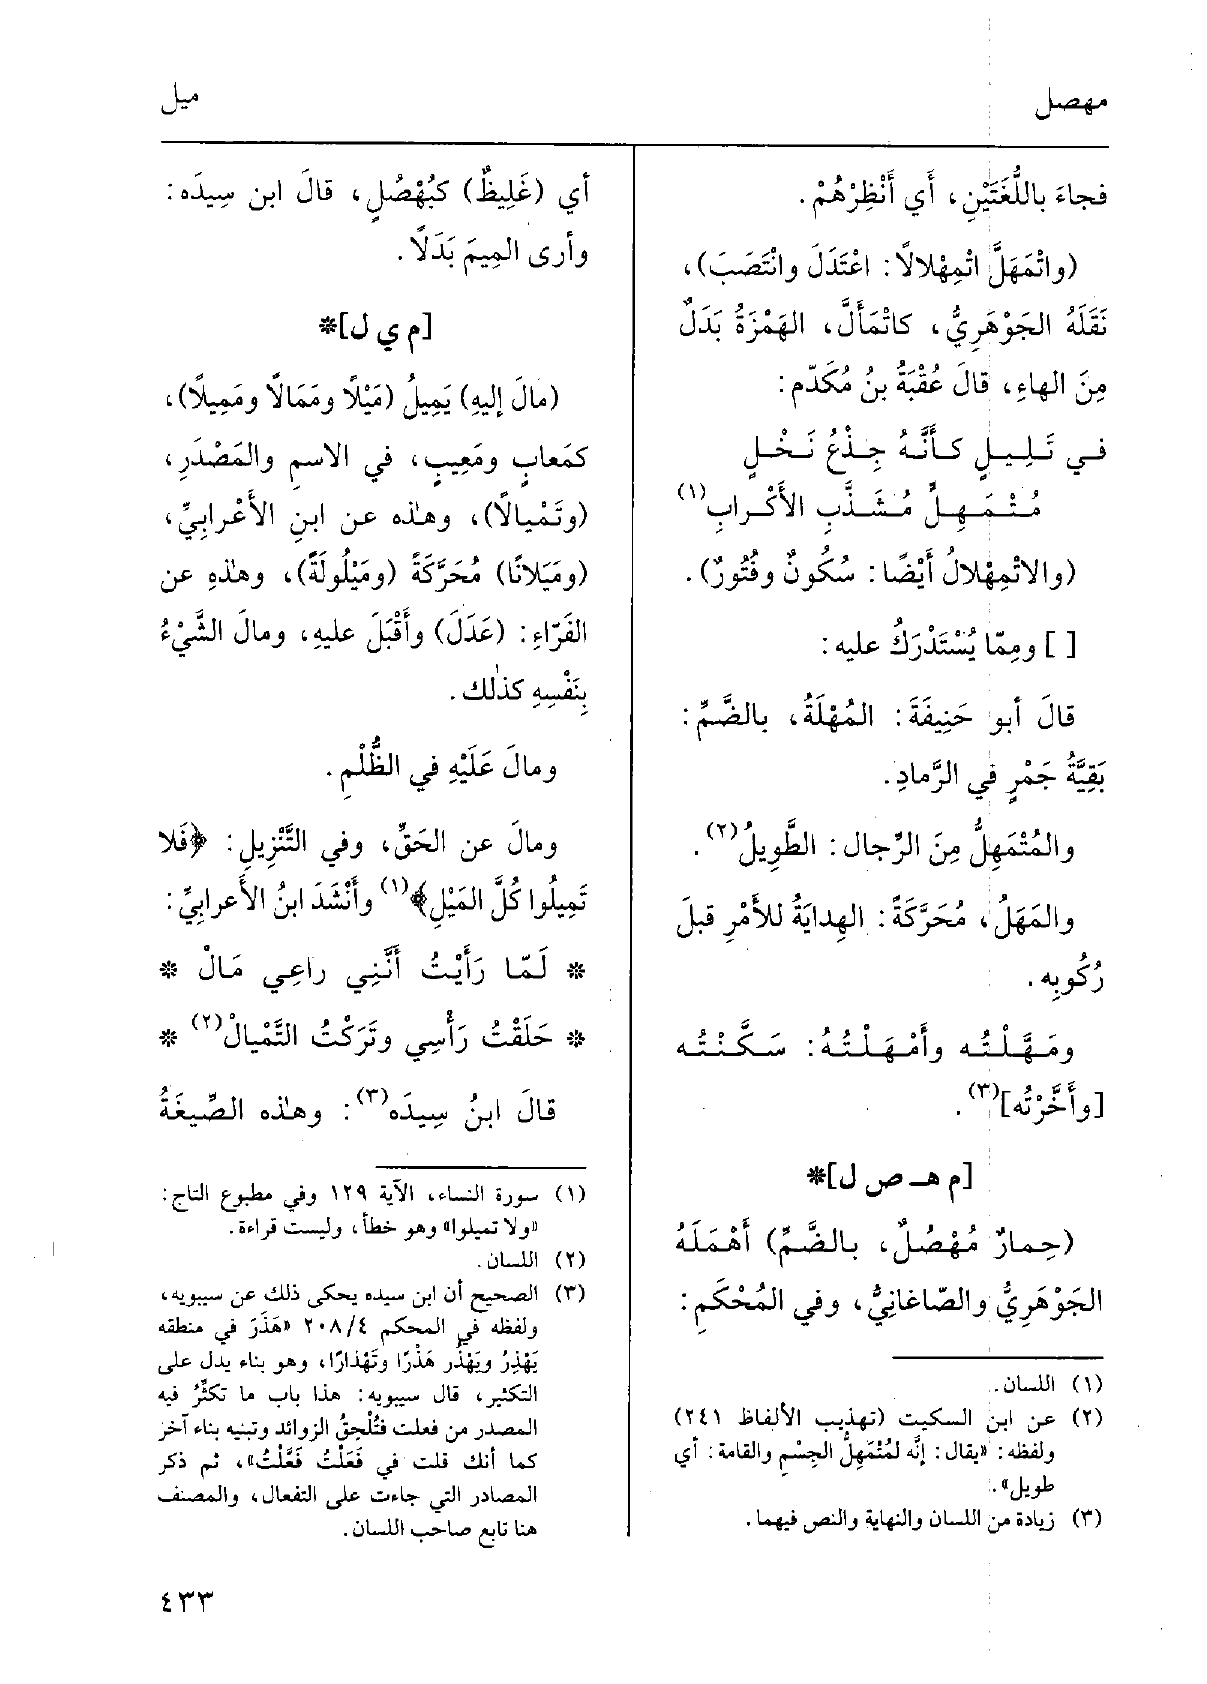 مهصل
ميل
فجاءَ باللُّغَتَيْنِ، أَي أَنْظِرْهُمْ.
(واتْمَهَلَّ اتْمِهْلالاً: اعْتَدَلَ وانْتَصَبَ)،
نَقَلَهُ الجَوْهَرِيُّ، كاتْمَأَلَّ، الهَمْزَةُ بَدَلٌ
مِنَ الهاءِ، قالَ عُقْبَةُ بنُ مُكَدّم:
في تَلِيلٍ كأَنَّهُ جِذْعُ نَخْلٍ
مُتْمَهِلٍّ مُشَذَّبِ الأَكْرابِ(١)
(والاتْمِهْلالُ أَيْضًا: سُكُونٌ وفُتُورٌ).
[ ] ومِمّا يُسْتَدْرَكُ عليه:
قالَ أبو حَنِيفَةَ: المُهْلَةُ، بالضَّمِّ:
بَقِيَّةُ جَمْرٍ في الرَّمادِ.
والمُتْمَهِلُّ مِنَ الرِّجال: الطَّوِيلُ(٢).
والمَهَلُ، مُحَرَّكَةً: الهِدايَةُ للأَمْرِ قبلَ
رُكُوبِه.
ومَهَّلْتُه وأَمْهَلْتُهُ: سَكَّنْتُه
[وأَخَّرْتُه](٣).
[م هـ ص ل]*
(حِمارٌ مُهْصُلٌ، بالضَّمِّ) أَهْمَلَهُ
الجَوْهَرِيُّ والصّاغانِيُّ، وفي المُحْكَمِ:
(١) اللسان.
(٢) عن ابن السكيت (تهذيب الألفاظ ٢٤١)
ولفظه: «يقال: إنَّه لمُتْمَهِلُّ الجِسْمِ والقامة: أي
طويل».
(٣) زيادة من اللسان والنهاية والنص فيهما.
أي (غَلِيظٌ) كبُهْصُلٍ، قالَ ابن سِيدَه:
وأرى المِيمَ بَدَلًا.
[م ي ل]*
(مالَ إليهِ) يَمِيلُ (مَيْلًا ومَمَالًا ومَمِيلًا)،
كمَعابٍ ومَعِيبٍ، في الاسمِ والمَصْدَرِ،
(وتَمْيالًا)، وهذه عن ابنِ الأَعْرابِيِّ،
(ومَيَلانًا) مُحَرَّكَةً (ومَيْلُولَةً)، وهذهِ عن
الفَرّاءِ: (عَدَلَ) وأَقْبَلَ عليهِ، ومالَ الشَّيْءُ
بِنَفْسِهِ كذلك.
ومالَ عَلَيْهِ في الظُّلْمِ.
ومالَ عن الحَقِّ، وفي التَّنْزِيلِ: ﴿فَلا
تَمِيلُوا كُلَّ المَيْلِ﴾(١) وأَنْشَدَ ابنُ الأعرابيِّ:
* لَمّا رَأَيْتُ أَنَّنِي راعِي مَالْ *
* حَلَقْتُ رَأْسِي وتَرَكْتُ التَّمْيالْ(٢) *
قالَ ابنُ سِيدَه(٣): وهذه الصِّيغَةُ
(١) سورة النساء، الآية ١٢٩ وفي مطبوع التاج:
«ولا تميلوا» وهو خطأ، وليست قراءة.
(٢) اللسان.
(٣) الصحيح أن ابن سيده يحكى ذلك عن سيبويه،
ولفظه في المحكم ٢٠٨/٤ «هَذَرَ في منطقه
يَهْذِرُ ويَهْذُر هَذْرًا وتَهْذارًا، وهو بناء يدل على
التكثير، قال سيبويه: هذا باب ما تكثِّرُ فيه
المصدر من فعلت فتُلْحِقُ الزوائد وتبنيه بناء آخر
كما أنك قلت في فَعَلْتُ فَعَّلْتُ»، ثم ذكر
المصادر التي جاءت على التفعال، والمصنف
هنا تابع صاحب اللسان.
٤٣٣